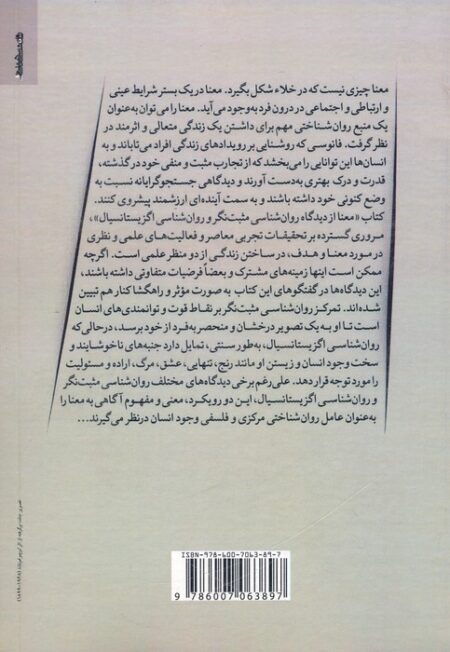 معنا چیزی نیست که در خلاء شکل بگیرد. معنا در یک بستر شرایط عینی
و ارتباطی و اجتماعی در درون فرد به‌وجود می‌آید. معنا را می‌توان به‌عنوان
یک منبع روان‌شناختی مهم برای داشتن یک زندگی متعالی و اثرمند در
نظر گرفت. فانوسی که روشنایی بر رویدادهای زندگی افراد می‌تاباند و به
انسان‌ها این توانایی را می‌بخشد که از تجارب مثبت و منفی خود در گذشته،
قدرت و درک بهتری به‌دست آورند و دیدگاهی جستجوگرایانه نسبت به
وضع کنونی خود داشته باشند و به سمت آینده‌ای ارزشمند پیشروی کنند.
کتاب «معنا از دیدگاه روان‌شناسی مثبت‌نگر و روان‌شناسی اگزیستانسیال»،
مروری گسترده بر تحقیقات تجربی معاصر و فعالیت‌های علمی و نظری
در مورد معنا و هدف، در ساختن زندگی از دو منظر علمی است. اگرچه
ممکن است اینها زمینه‌های مشترک و بعضاً فرضیات متفاوتی داشته باشند،
این دیدگاه‌ها در گفتگوهای این کتاب به صورت مؤثر و راهگشا کنار هم تبیین
شده‌اند. تمرکز روان‌شناسی مثبت‌نگر بر نقاط قوت و توانمندی‌های انسان
است تا او به یک تصویر درخشان و منحصر به فرد از خود برسد، درحالی که
روان‌شناسی اگزیستانسیال، به‌طور سنتی، تمایل دارد جنبه‌های ناخوشایند و
سخت وجود انسان و زیستن او مانند رنج، تنهایی، عشق، مرگ، اراده و مسئولیت
را مورد توجه قرار دهد. علی‌رغم برخی دیدگاه‌های مختلف روان‌شناسی مثبت‌نگر
و روان‌شناسی اگزیستانسیال، این دو رویکرد، معنی و مفهوم آگاهی به معنا را
به‌عنوان عامل روان‌شناختی مرکزی و فلسفی وجود انسان درنظر می‌گیرند...
ISBN-978-600-7063-89-7
9 786007 063897